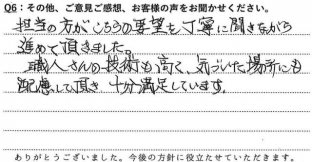 Q6：その他、ご意見ご感想、お客様の声をお聞かせください。
担当の方がこちらの要望を丁寧に聞きながら
進めて頂きました。
職人さんの技術も高く、気づいた場所にも
配慮して頂き 十分満足しています。
ありがとうございました。今後の方針に役立たせていただきます。